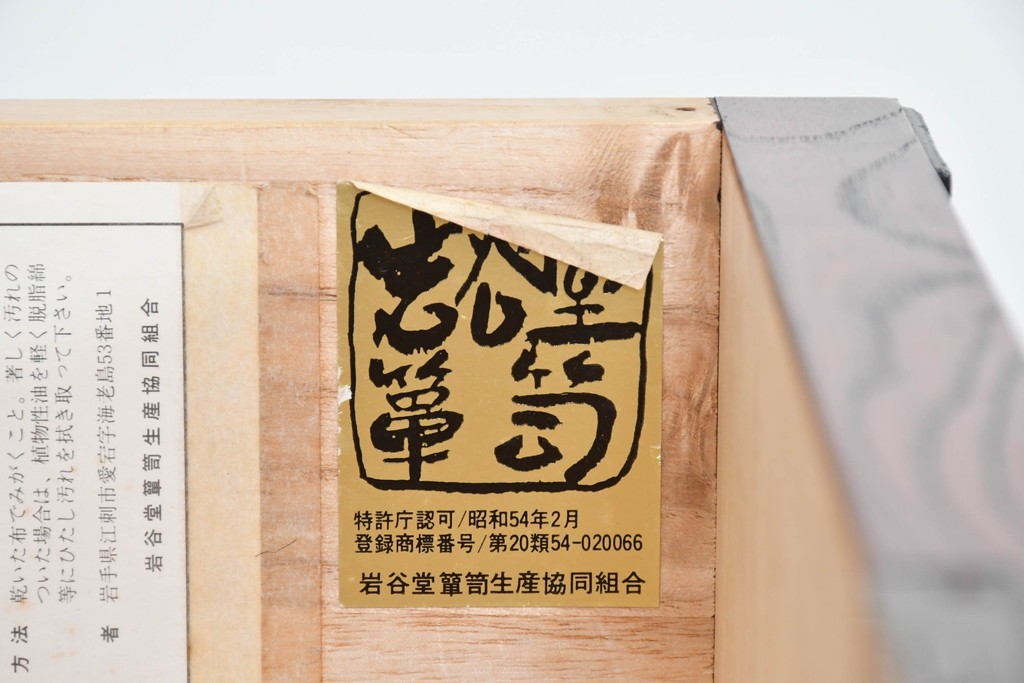 方法 乾いた布でみがくこと。著しく汚れの
ついた場合は、植物性油を軽く脱脂綿
等にひたし汚れを拭き取って下さい。
者 岩手県江刺市愛宕字海老島53番地1
岩谷堂簞笥生産協同組合
岩谷堂
簞笥
特許庁認可/昭和54年2月
登録商標番号/第20類54-020066
岩谷堂簞笥生産協同組合